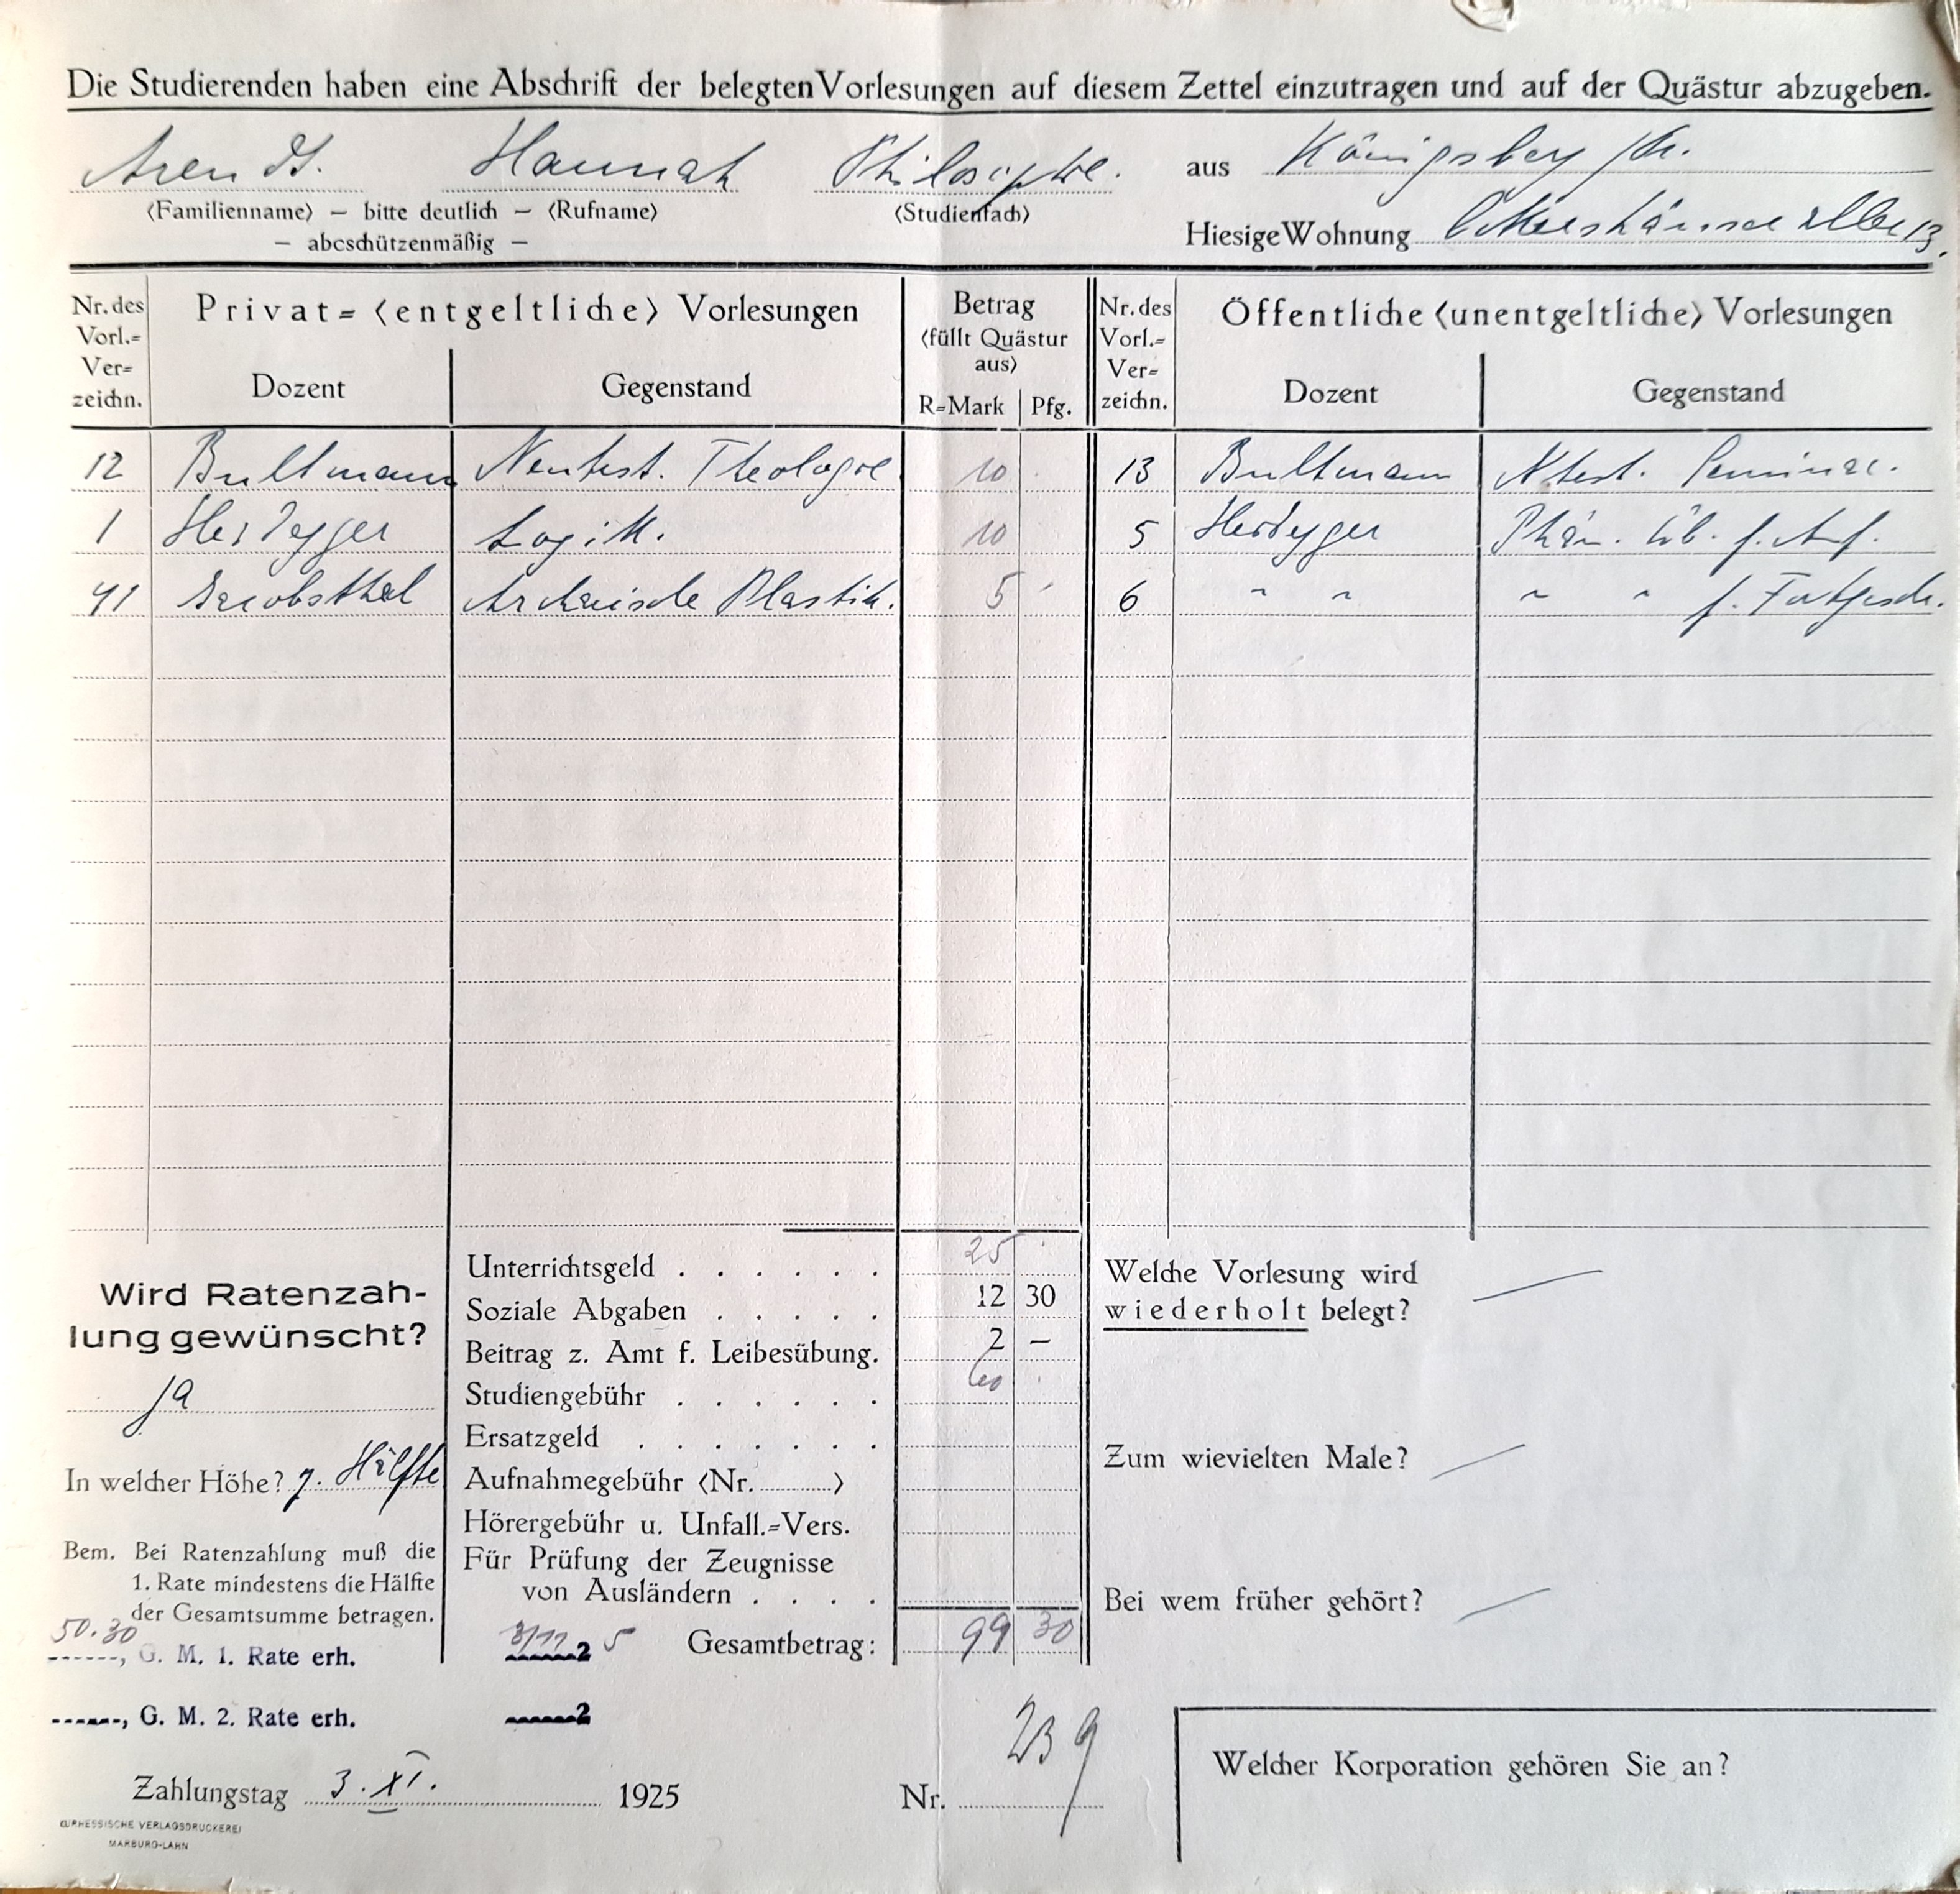 Die Studierenden haben eine Abschrift der belegten Vorlesungen auf diesem Zettel einzutragen und auf der Quästur abzugeben.
Arendt. Hannah Philosophie. aus Königsberg /Pr.
(Familienname) — bitte deutlich — (Rufname) (Studienfach)
— abcschützenmäßig —
Hiesige Wohnung Ockershäuser Allee 13.
Nr. des Vorl.= Ver= zeichn.
Privat= (entgeltliche) Vorlesungen
Dozent Gegenstand
Betrag
(füllt Quästur
aus)
R=Mark Pfg.
Nr. des Vorl.= Ver= zeichn.
Öffentliche (unentgeltliche) Vorlesungen
Dozent Gegenstand
12 Bultmann Neutest. Theologie 10 13 Bultmann Ntest. Seminar.
1 Heidegger Logik. 10 5 Heidegger Phän. Üb. f. Anf.
41 Jacobsthal Archaische Plastik. 5 6 " " " " f. Fortgesch.
Wird Ratenzah-
lung gewünscht?
ja
In welcher Höhe? z. Hälfte
Bem. Bei Ratenzahlung muß die
1. Rate mindestens die Hälfte
der Gesamtsumme betragen.
50.30
, G. M. 1. Rate erh. 3/11 25
, G. M. 2. Rate erh. 2
Unterrichtsgeld . . . . . . 25
Soziale Abgaben . . . . . 12 30
Beitrag z. Amt f. Leibesübung. 2 —
Studiengebühr . . . . . . 60
Ersatzgeld . . . . . . .
Aufnahmegebühr (Nr. ........)
Hörergebühr u. Unfall.=Vers.
Für Prüfung der Zeugnisse
von Ausländern . . . .
Gesamtbetrag: 99 30
Welche Vorlesung wird
wiederholt belegt? —
Zum wievielten Male? —
Bei wem früher gehört? —
Zahlungstag 3. XI. 1925
Nr. 239
Welcher Korporation gehören Sie an?
KURHESSISCHE VERLAGSDRUCKEREI
MARBURG-LAHN